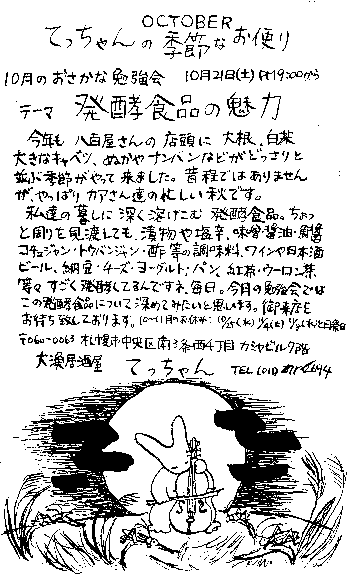 OCTOBER
てっちゃんの季節なお便り
10月のおさかな勉強会 10月21日(土) PM9:00から
テーマ 発酵食品の魅力
今年も八百屋さんの店頭に大根、白菜
大きなキャベツ、ぬかやナンバンなどがどっさりと
並ぶ季節がやって来ました。昔程ではありません
が、やっぱりカアさん達の忙しい秋です。
私達の暮しに深く溶けこむ発酵食品。ちょっ
と周りを見渡しても、漬物や塩辛、味噌醤油・魚醤
コチュジャン・トウバンジャン・酢等の調味料、ワインや日本酒
ビール、納豆・チーズ・ヨーグルト・パン、紅茶・ウーロン茶
等々すごく発酵してるんですネ、毎日。今月の勉強会では
この発酵食品について深めてみたいと思います。御来店を
お待ち致しております。
〒060-0063 札幌市中央区南3条西4丁目 カミヤビル7階
大漁居酒屋 てっちゃん TEL (011)